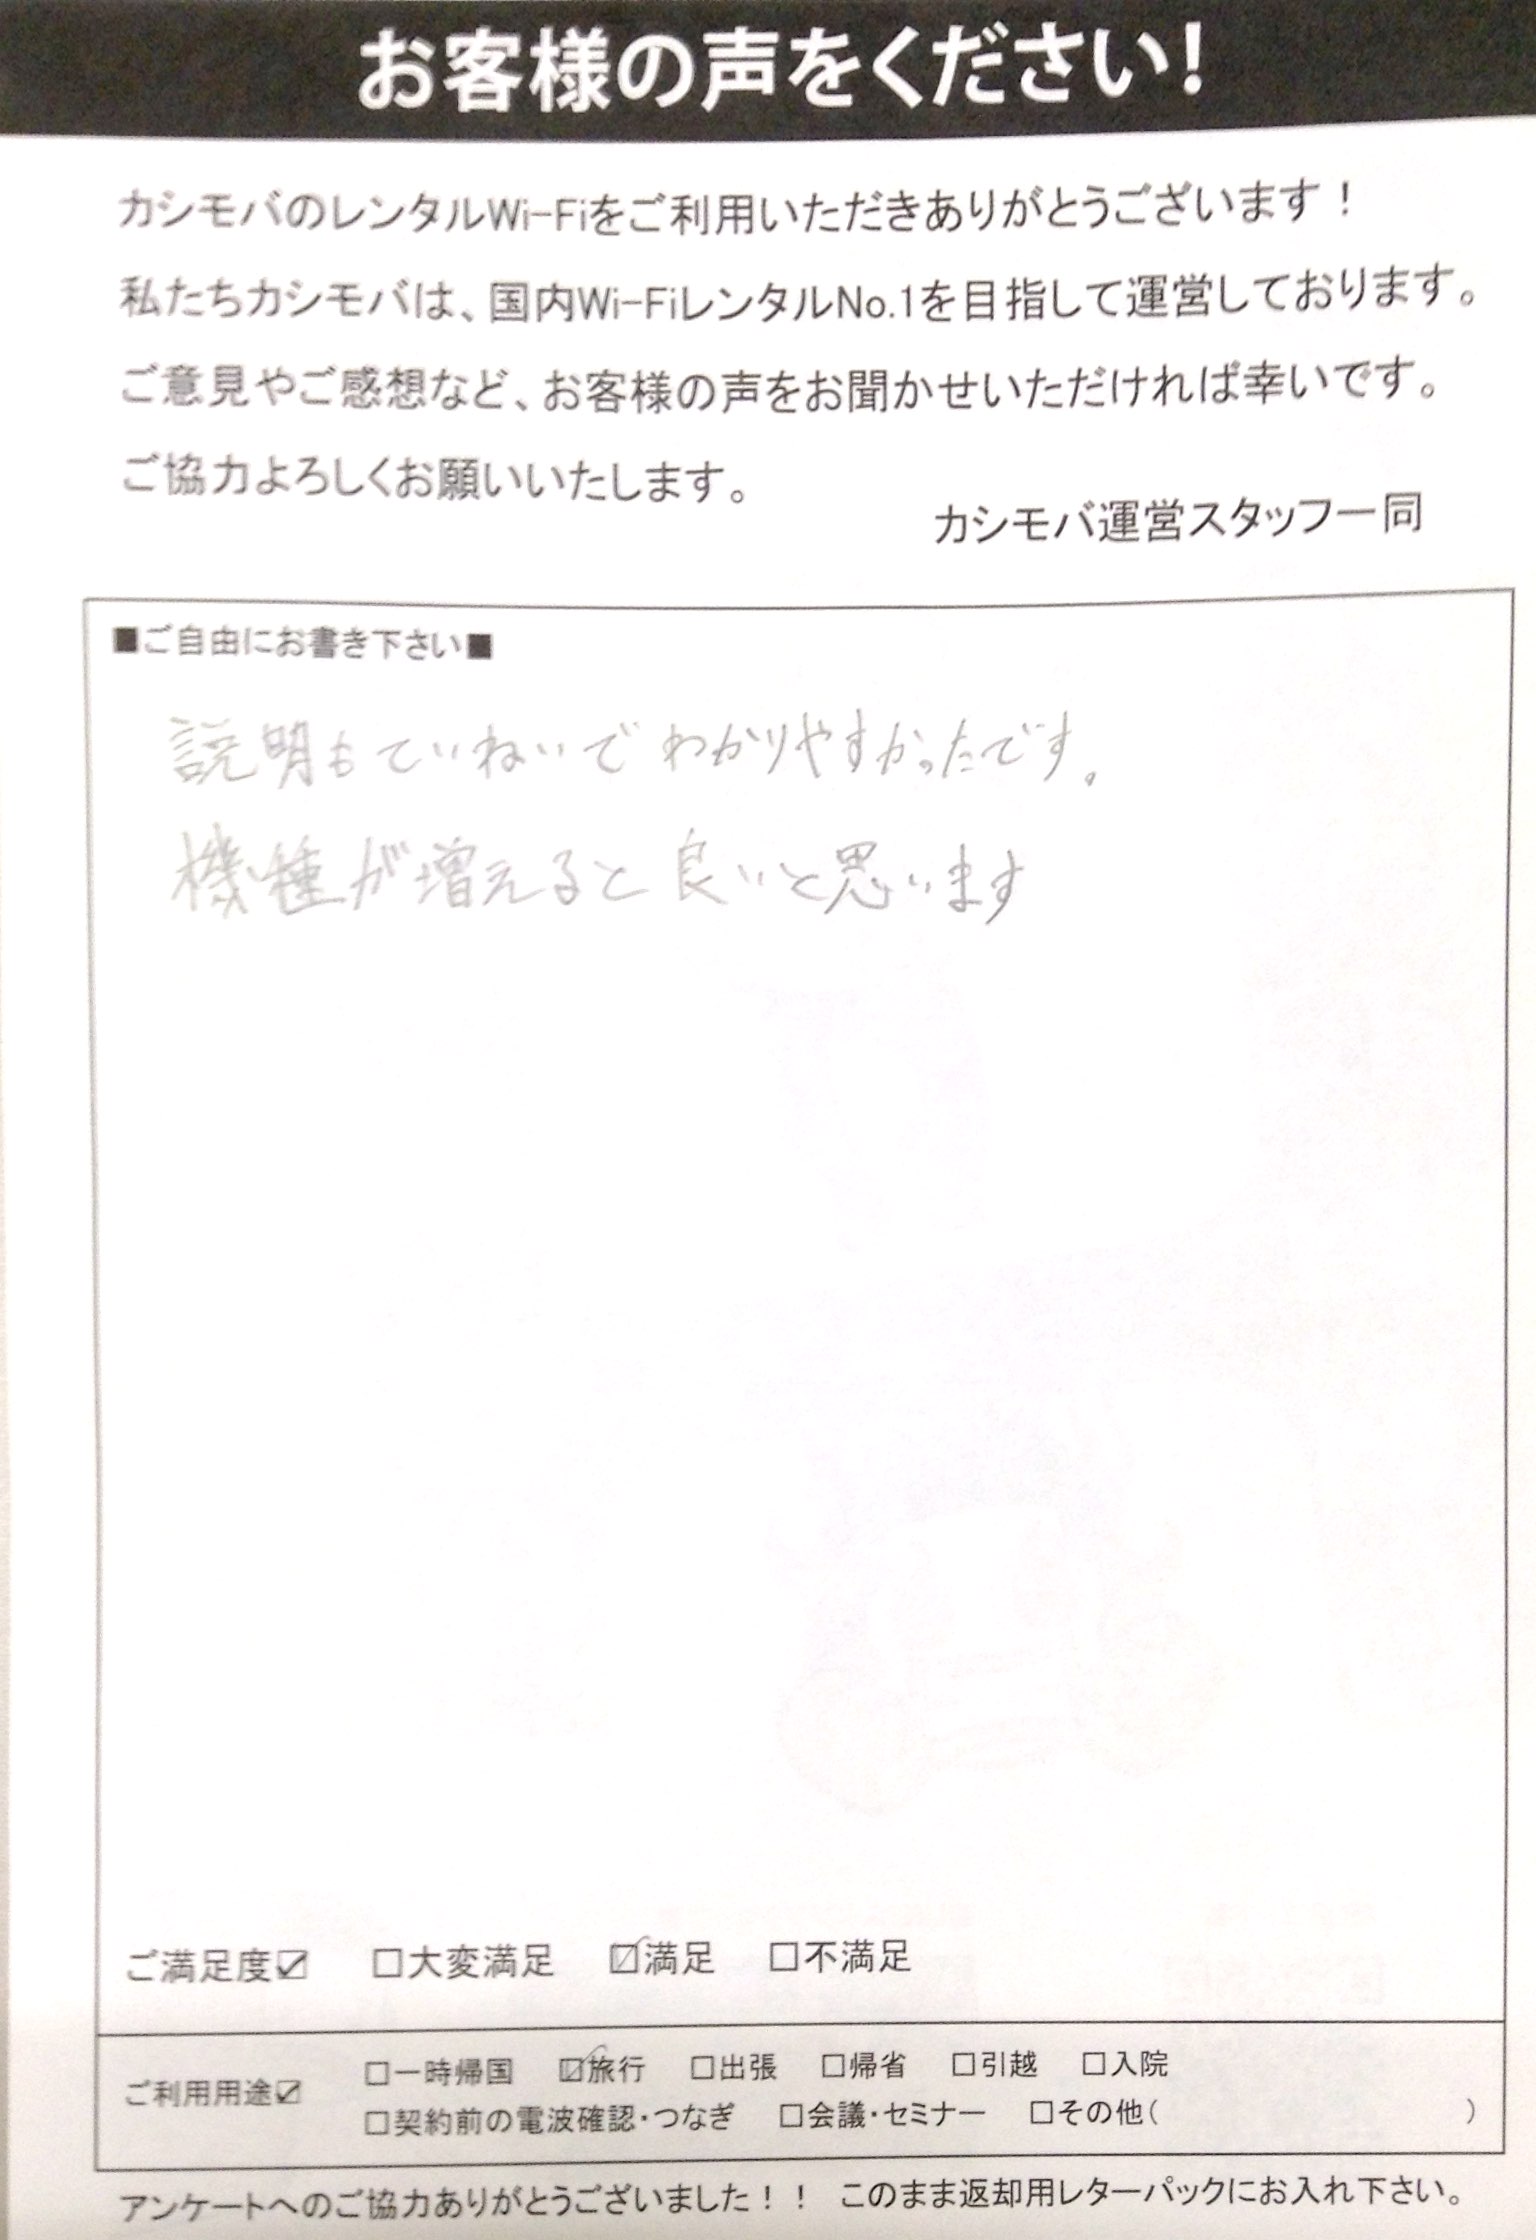 お客様の声をください!
カシモバのレンタルWi-Fiをご利用いただきありがとうございます！
私たちカシモバは、国内Wi-FiレンタルNo.1を目指して運営しております。
ご意見やご感想など、お客様の声をお聞かせいただければ幸いです。
ご協力よろしくお願いいたします。
カシモバ運営スタッフ一同
■ご自由にお書き下さい■
説明もていねいでわかりやすかったです。
機種が増えると良いと思います
ご満足度☑ □大変満足 ☑満足 □不満足
ご利用用途☑ □一時帰国 ☑旅行 □出張 □帰省 □引越 □入院
□契約前の電波確認・つなぎ □会議・セミナー □その他( )
アンケートへのご協力ありがとうございました！！ このまま返却用レターパックにお入れ下さい。